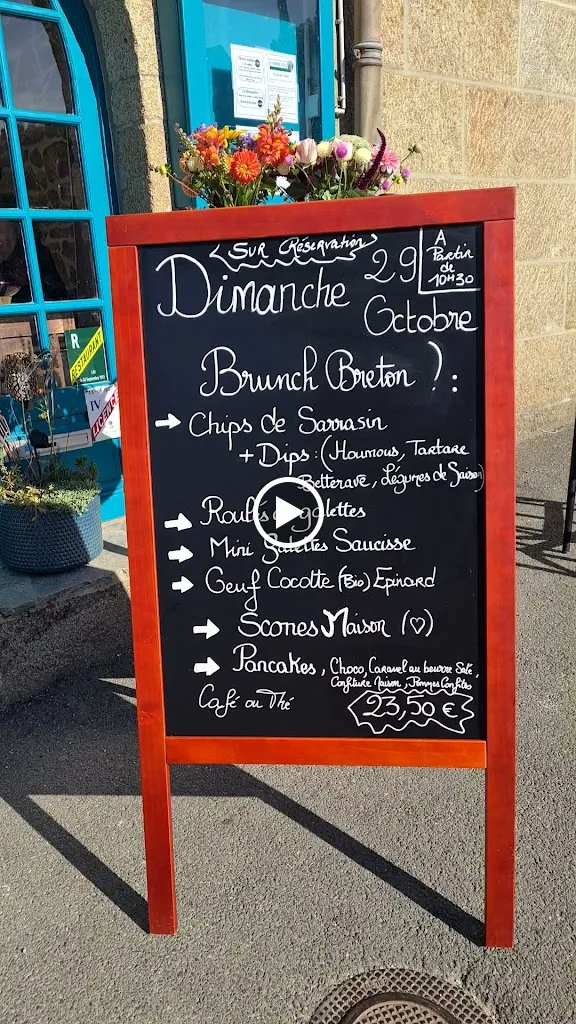 Sur Réservation
Dimanche 29
Octobre
A
Partir
de
10H30
Brunch Breton ! :
→ Chips de Sarrasin
+ Dips : (Houmous, Tartare
Betterave, Légumes de Saison)
→ Roulés galettes
→ Mini galettes Saucisse
→ Oeuf Cocotte (Bio) Epinard
→ Scones Maison (♡)
→ Pancakes, Choco, Caramel au beurre Salé,
Confiture Maison, Pommes Confites
Café ou Thé
23,50 €
R
RESTAURANT
IV
LICENCE